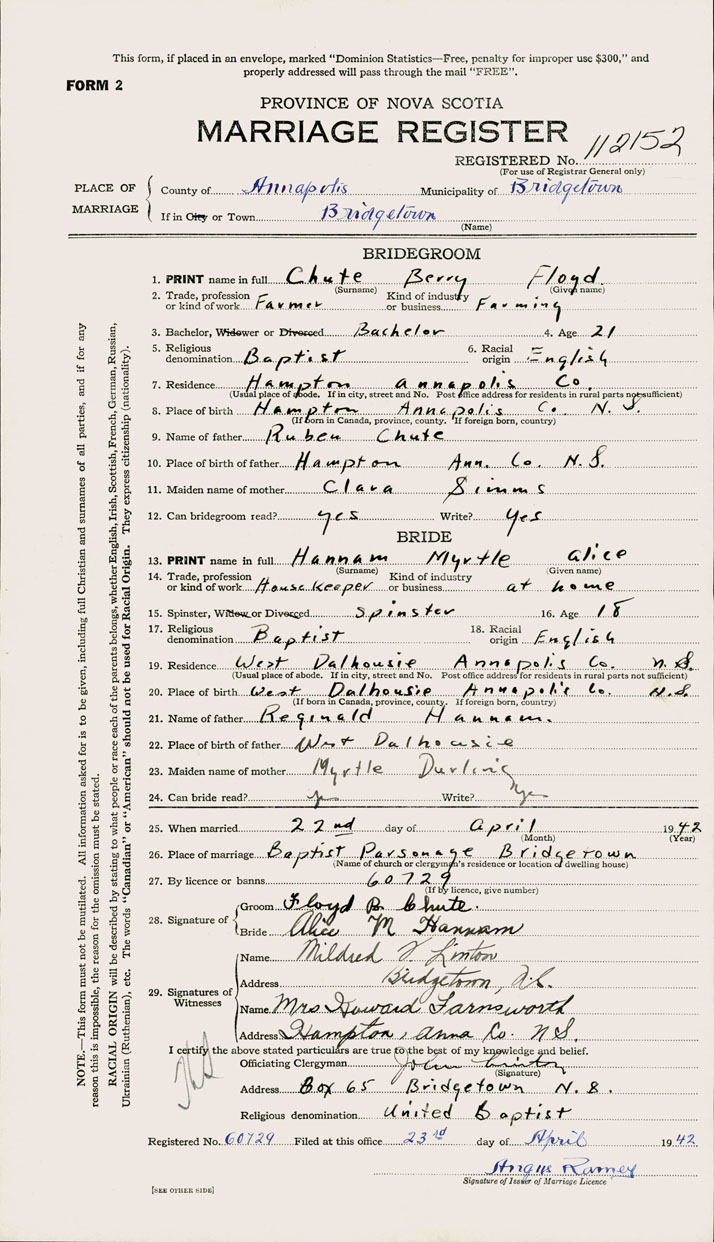 This form, if placed in an envelope, marked "Dominion Statistics—Free, penalty for improper use $300," and
properly addressed will pass through the mail "FREE".
FORM 2
PROVINCE OF NOVA SCOTIA
MARRIAGE REGISTER
REGISTERED No. 112152
(For use of Registrar General only)
PLACE OF MARRIAGE
County of Annapolis Municipality of Bridgetown
If in City or Town Bridgetown
(Name)
BRIDEGROOM
1. PRINT name in full Chute Berry Floyd
(Surname) (Given name)
2. Trade, profession or kind of work Farmer Kind of industry or business Farming
3. Bachelor, Widower or Divorced Bachelor 4. Age 21
5. Religious denomination Baptist 6. Racial origin English
7. Residence Hampton Annapolis Co.
(Usual place of abode. If in city, street and No. Post office address for residents in rural parts not sufficient)
8. Place of birth Hampton Annapolis Co. N. S.
(If born in Canada, province, county. If foreign born, country)
9. Name of father Ruben Chute
10. Place of birth of father Hampton Ann. Co. N. S.
11. Maiden name of mother Clara Simms
12. Can bridegroom read? yes Write? yes
BRIDE
13. PRINT name in full Hannam Myrtle Alice
(Surname) (Given name)
14. Trade, profession or kind of work Housekeeper Kind of industry or business at home
15. Spinster, Widow or Divorced Spinster 16. Age 18
17. Religious denomination Baptist 18. Racial origin English
19. Residence West Dalhousie Annapolis Co. N. S.
(Usual place of abode. If in city, street and No. Post office address for residents in rural parts not sufficient)
20. Place of birth West Dalhousie Annapolis Co. N. S.
(If born in Canada, province, county. If foreign born, country)
21. Name of father Reginald Hannam.
22. Place of birth of father West Dalhousie
23. Maiden name of mother Myrtle Durling
24. Can bride read? yes Write? yes
25. When married 22nd day of April 1942
(Month) (Year)
26. Place of marriage Baptist Parsonage Bridgetown
(Name of church or clergyman's residence or location of dwelling house)
27. By licence or banns 60729
(If by licence, give number)
28. Signature of
Groom Floyd B. Chute.
Bride Alice M Hannam
29. Signatures of Witnesses
Name Mildred V. Linton
Address Bridgetown, N.S.
Name Mrs Howard Farnsworth
Address Hampton, Anna Co. N S.
I certify the above stated particulars are true to the best of my knowledge and belief.
Officiating Clergyman John Linton
(Signature)
Address Box 65 Bridgetown N. S.
Religious denomination United Baptist
Registered No. 60729 Filed at this office 23rd day of April 1942
Angus Ramey
Signature of Issuer of Marriage Licence
[SEE OTHER SIDE]
NOTE.—This form must not be mutilated. All information asked for is to be given, including full Christian and surnames of all parties, and if for any
reason this is impossible, the reason for the omission must be stated.
RACIAL ORIGIN will be described by stating to what people or race each of the parents belongs, whether English, Irish, Scottish, French, German, Russian,
Ukrainian (Ruthenian), etc. The words "Canadian" or "American" should not be used for Racial Origin. They express citizenship (nationality).